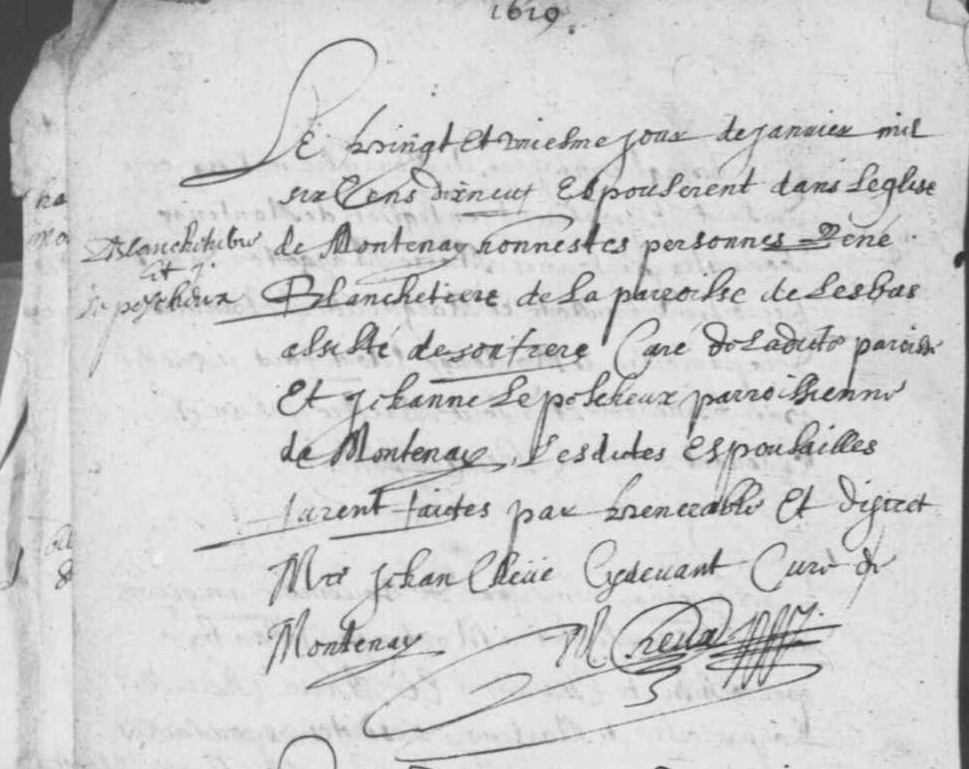 1619
Le vingt et uniesme jour de janvier mil
six cens dixneuf espouserent dans leglise
de Montenay honnestes personnes René
Blanchetiere de la paroisse de Lesbas
assisté de son frere Curé de ladite paroisse
Et Jehanne Le poscheux parrochienne
de Montenay, Lesdites espousailles
furent faictes par venerable Et discret
Mre Jehan Cydevant Curé de
Montenay M
Blanchetiere
et
Le poscheux